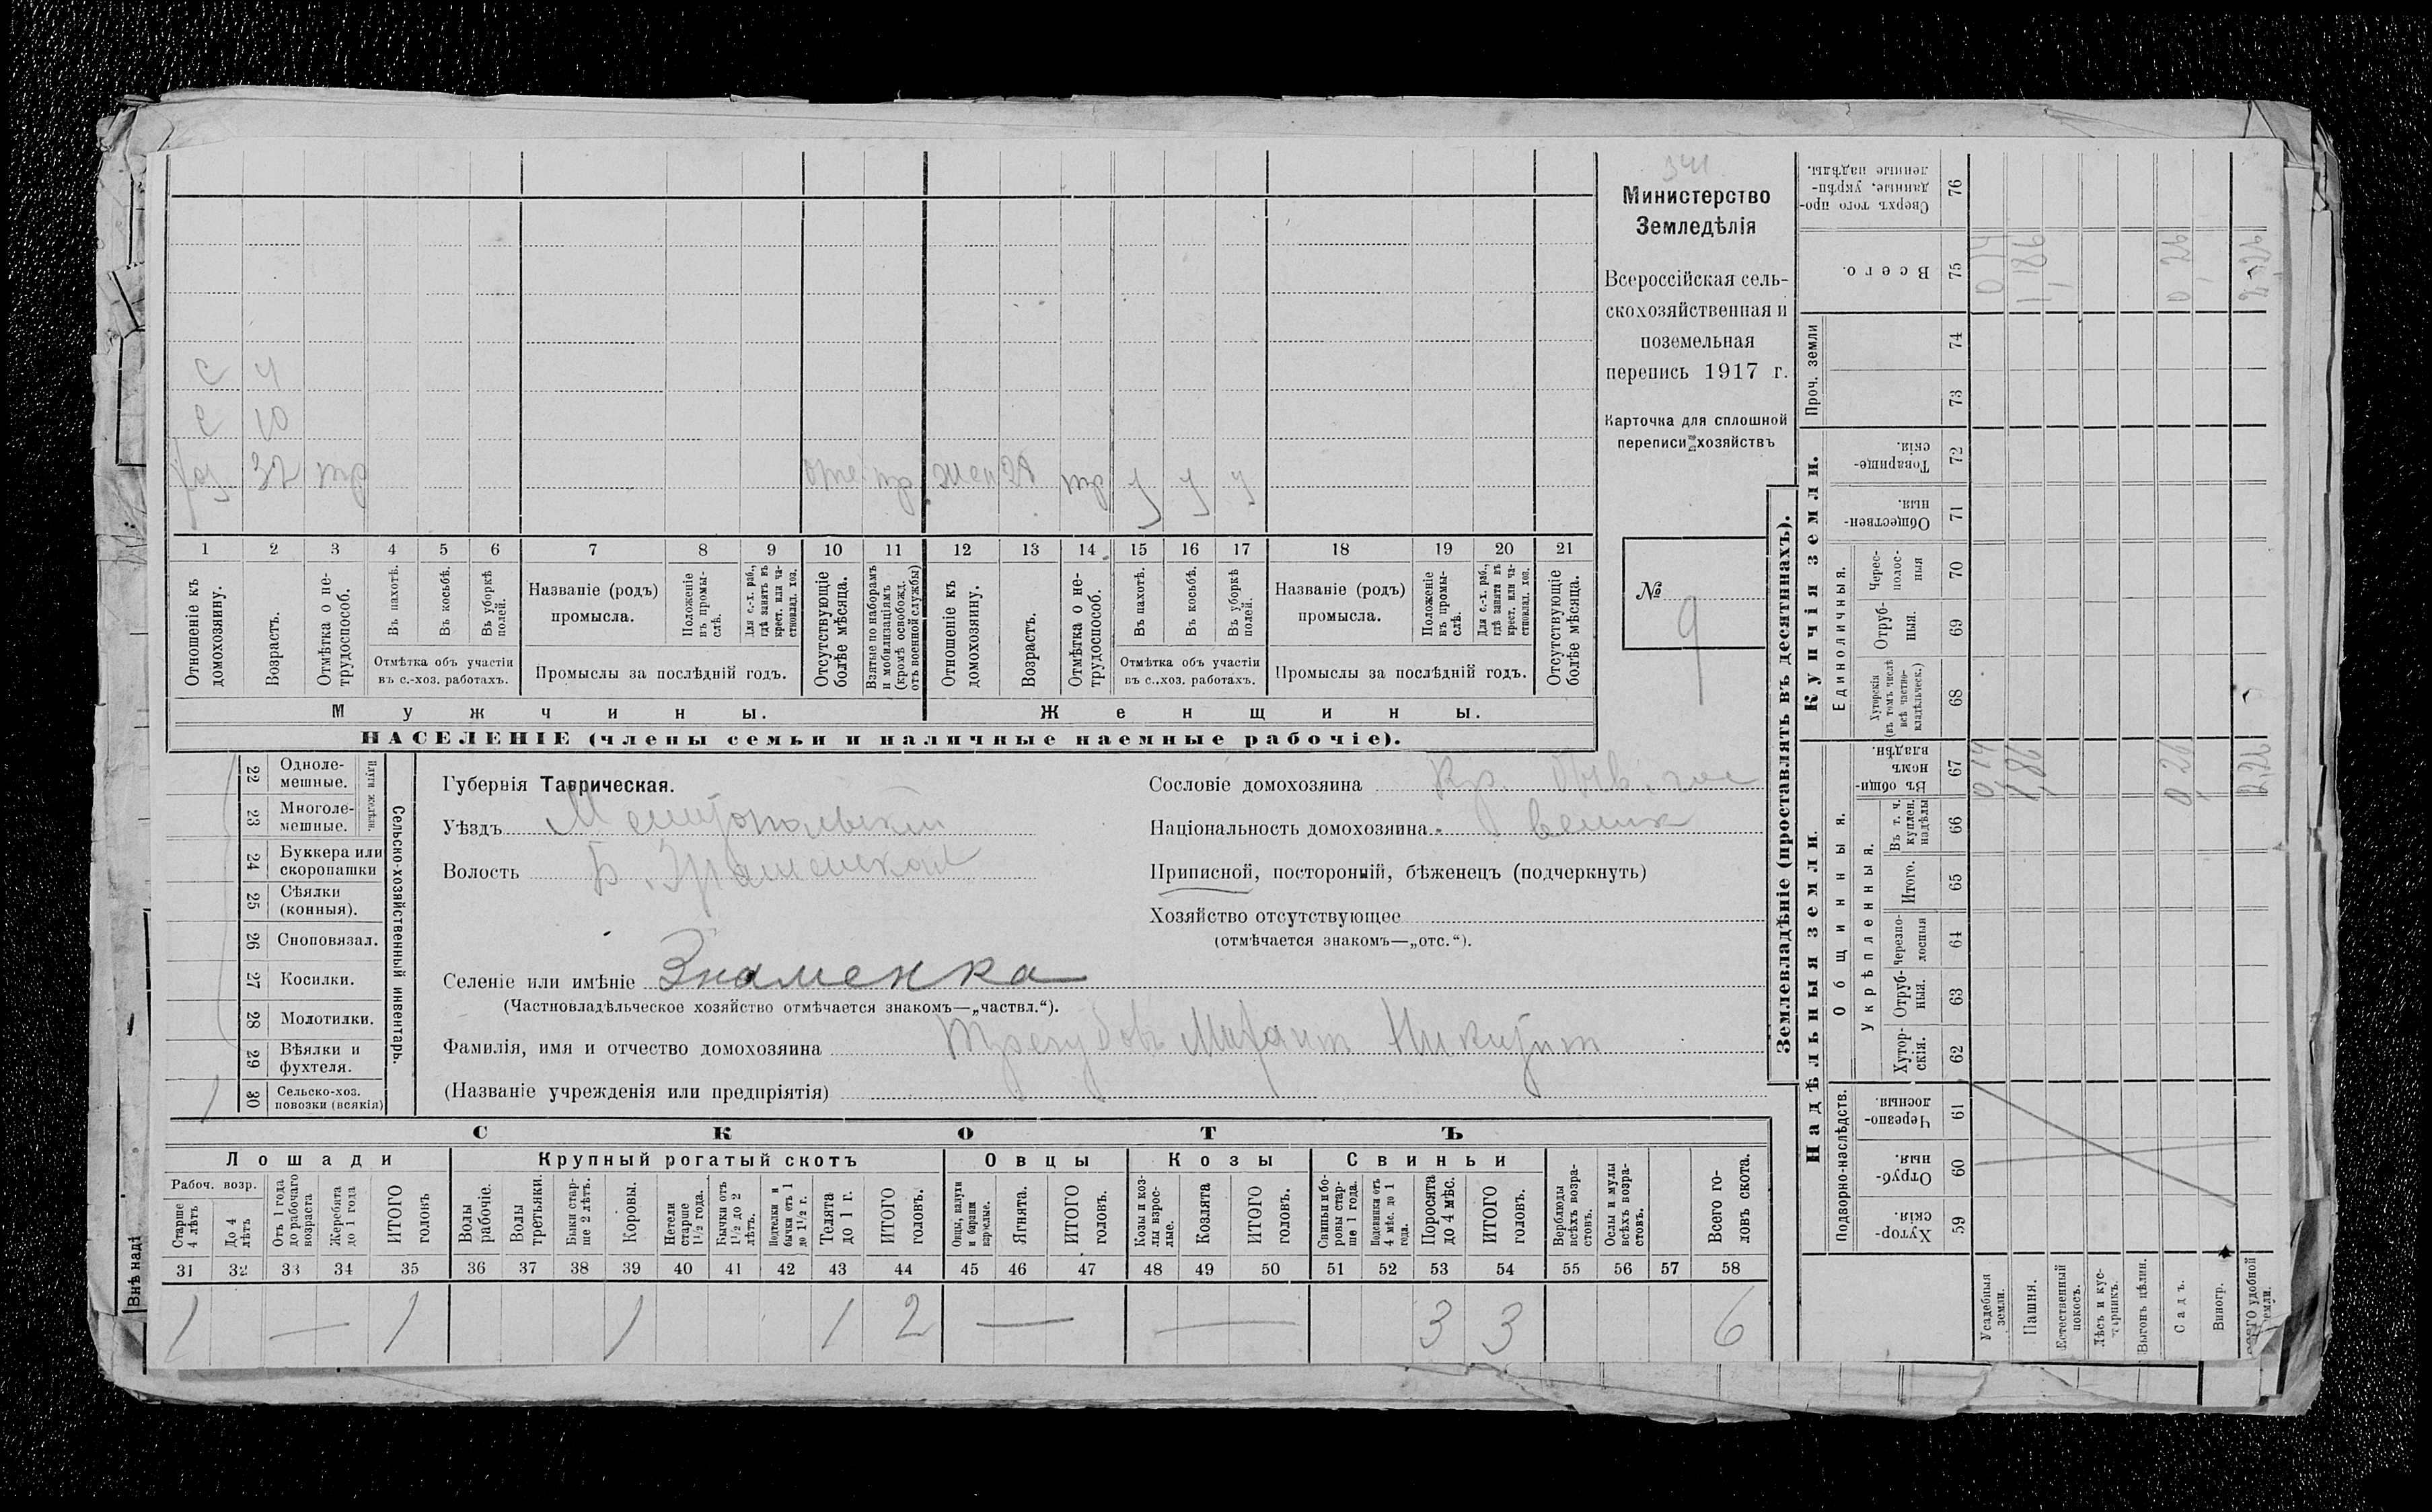 Министерство
Земледѣлія
Всероссійская сель-
скохозяйственная и
поземельная
перепись 1917 г.
Карточка для сплошной
переписи хозяйствъ
№ 9
с 4
с 10
хоз 32 тр жен 28 тр у у у
1 2 3 4 5 6 7 8 9 10 11 12 13 14 15 16 17 18 19 20 21
Отношеніе къ домохозяину.
Возрастъ.
Отмѣтка о не-трудоспособ.
Въ пахотѣ.
Въ косьбѣ.
Въ уборкѣ полей.
Отмѣтка объ участіи
въ с.-хоз. работахъ.
Названіе (родъ)
промысла.
Положеніе въ промы-слѣ.
Для с.-х. раб., гдѣ занятъ въ крест. или ча-стновлад. хоз.
Промыслы за послѣдній годъ.
Отсутствующіе болѣе мѣсяца.
Взятые по наборамъ и мобилизаціямъ (кромѣ освобожд. отъ военной службы)
Отношеніе къ домохозяину.
Возрастъ.
Отмѣтка о не-трудоспособ.
Въ пахотѣ.
Въ косьбѣ.
Въ уборкѣ полей.
Отмѣтка объ участіи
въ с.-хоз. работахъ.
Названіе (родъ)
промысла.
Положеніе въ промы-слѣ.
Для с.-х. раб., гдѣ занята въ крест. или ча-стновлад. хоз.
Промыслы за послѣдній годъ.
Отсутствующіе болѣе мѣсяца.
Мужчины. Женщины.
НАСЕЛЕНІЕ (члены семьи и наличные наемные рабочіе).
Сельско-хозяйственный инвентарь.
Плуги желѣзн.
22 Одноле-мешные.
23 Многоле-мешные.
24 Буккера или скоропашки
25 Сѣялки (конныя).
26 Сноповязал.
27 Косилки.
28 Молотилки.
29 Вѣялки и фухтеля.
30 Сельско-хоз. повозки (всякія) 1
Губернія Таврическая.
Уѣздъ Мелитопольскій
Волость Б. Знаменская
Селеніе или имѣніе Знаменка
(Частновладѣльческое хозяйство отмѣчается знакомъ—„частвл.“).
Фамилія, имя и отчество домохозяина Никит
(Названіе учрежденія или предпріятія)
Сословіе домохозяина Кр. быв. гос
Національность домохозяина велик
Приписной, посторонній, бѣженецъ (подчеркнуть)
Хозяйство отсутствующее
(отмѣчается знакомъ—„отс.“).
СКОТЪ
Лошади Крупный рогатый скотъ Овцы Козы Свиньи
Рабоч. возр.
Старше 4 лѣтъ
До 4 лѣтъ
Отъ 1 года до рабочаго возраста
Жеребята до 1 года
ИТОГО головъ
Волы рабочіе.
Волы третьяки.
Быки стар-ше 2 лѣтъ.
Коровы.
Нетели старше 1½ года.
Бычки отъ 1½ до 2 лѣтъ.
Подтелки и бычки отъ 1 до 1½ г.
Телята до 1 г.
ИТОГО головъ.
Овцы, валухи и бараны взрослые.
Ягнята.
ИТОГО головъ.
Козы и коз-лы взрос-лые.
Козлята
ИТОГО головъ.
Свиньи и бо-ровы стар-ше 1 года.
Подсвинки отъ 4 мѣс. до 1 года.
Поросята до 4 мѣс.
ИТОГО головъ.
Верблюды всѣхъ возра-стовъ.
Ослы и мулы всѣхъ возра-стовъ.
Всего го-ловъ скота.
31 32 33 34 35 36 37 38 39 40 41 42 43 44 45 46 47 48 49 50 51 52 53 54 55 56 57 58
1 — 1 1 1 2 — — 3 3 6
Землевладѣніе (проставлять въ десятинахъ).
Надѣльныя земли
Купчія земли.
Проч. земли
Подворно-наслѣдств.
Общинныя.
Укрѣпленныя.
Единоличныя.
Хутор-скія. 59
Отруб-ныя. 60
Черезпо-лосныя. 61
Хутор-скія. 62
Отруб-ныя. 63
Черезпо-лосныя 64
Итого. 65
Въ т. ч. куплен. надѣлы 66
Въ общин-номъ владѣн. 67
Хуторскія (въ томъ числѣ всѣ частно-владѣльческ.) 68
Отруб-ныя. 69
Черес-полос-ныя 70
Обществен-ныя. 71
Товарище-скія. 72
73
74
Всего. 75
Сверхъ того про-данные, укрѣп-ленные надѣлы. 76
Усадебныя земли. 0,14 0,14
Пашня. 1,86 1,86
Естественный покосъ.
Лѣсъ и кус-тарникъ.
Выгонъ цѣлин.
Садъ. 0,26 0,26
Виногр.
Всего удобной земли. 2,26
Внѣ надѣ